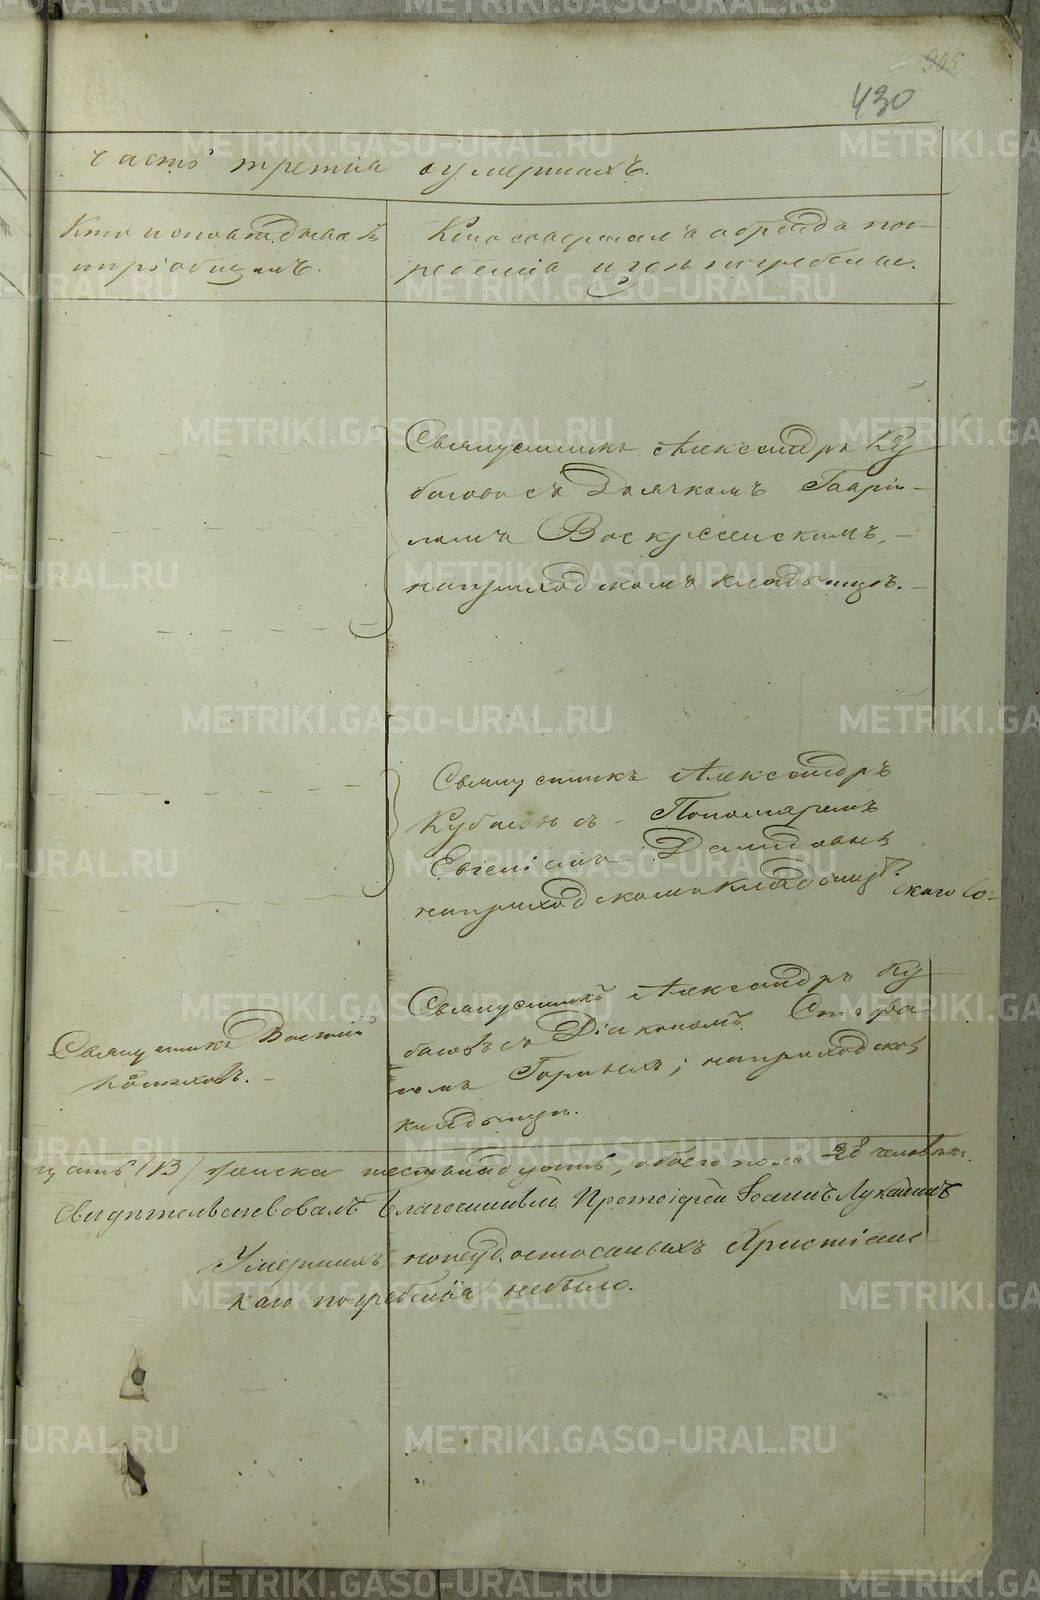 905
430
часть третія о умершихъ.
Кто исповѣдывалъ и
пріобщалъ.
Кто совершалъ обрядъ по-
гребенія и гдѣ погребены.
Священникъ Александръ Ку
басовъ съ Дьячкомъ Гаврі-
ломъ Воскресенскимъ,
на приходскомъ кладбищѣ.
Священникъ Александръ
Кубасовъ съ Пономаремъ
Евгеніемъ Демидовымъ
на приходскомъ кладбищѣ.
скаго со-
Священникъ Александръ Ку
басовъ съ Діакономъ Стефа
номъ Горныхъ; на приходском
кладбищѣ.
Священникъ Василій
цать (13) женска пятнадцать, обоего пола 28 человѣкъ.
Свидѣтельствовалъ Благочинный Протоіерей Іоаннъ Лукинъ
Умершихъ но неудостоенныхъ Христіанс
каго погребенія небыло.
METRIKI.GASO-URAL.RU